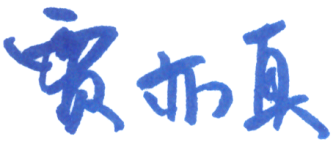 贾亦真